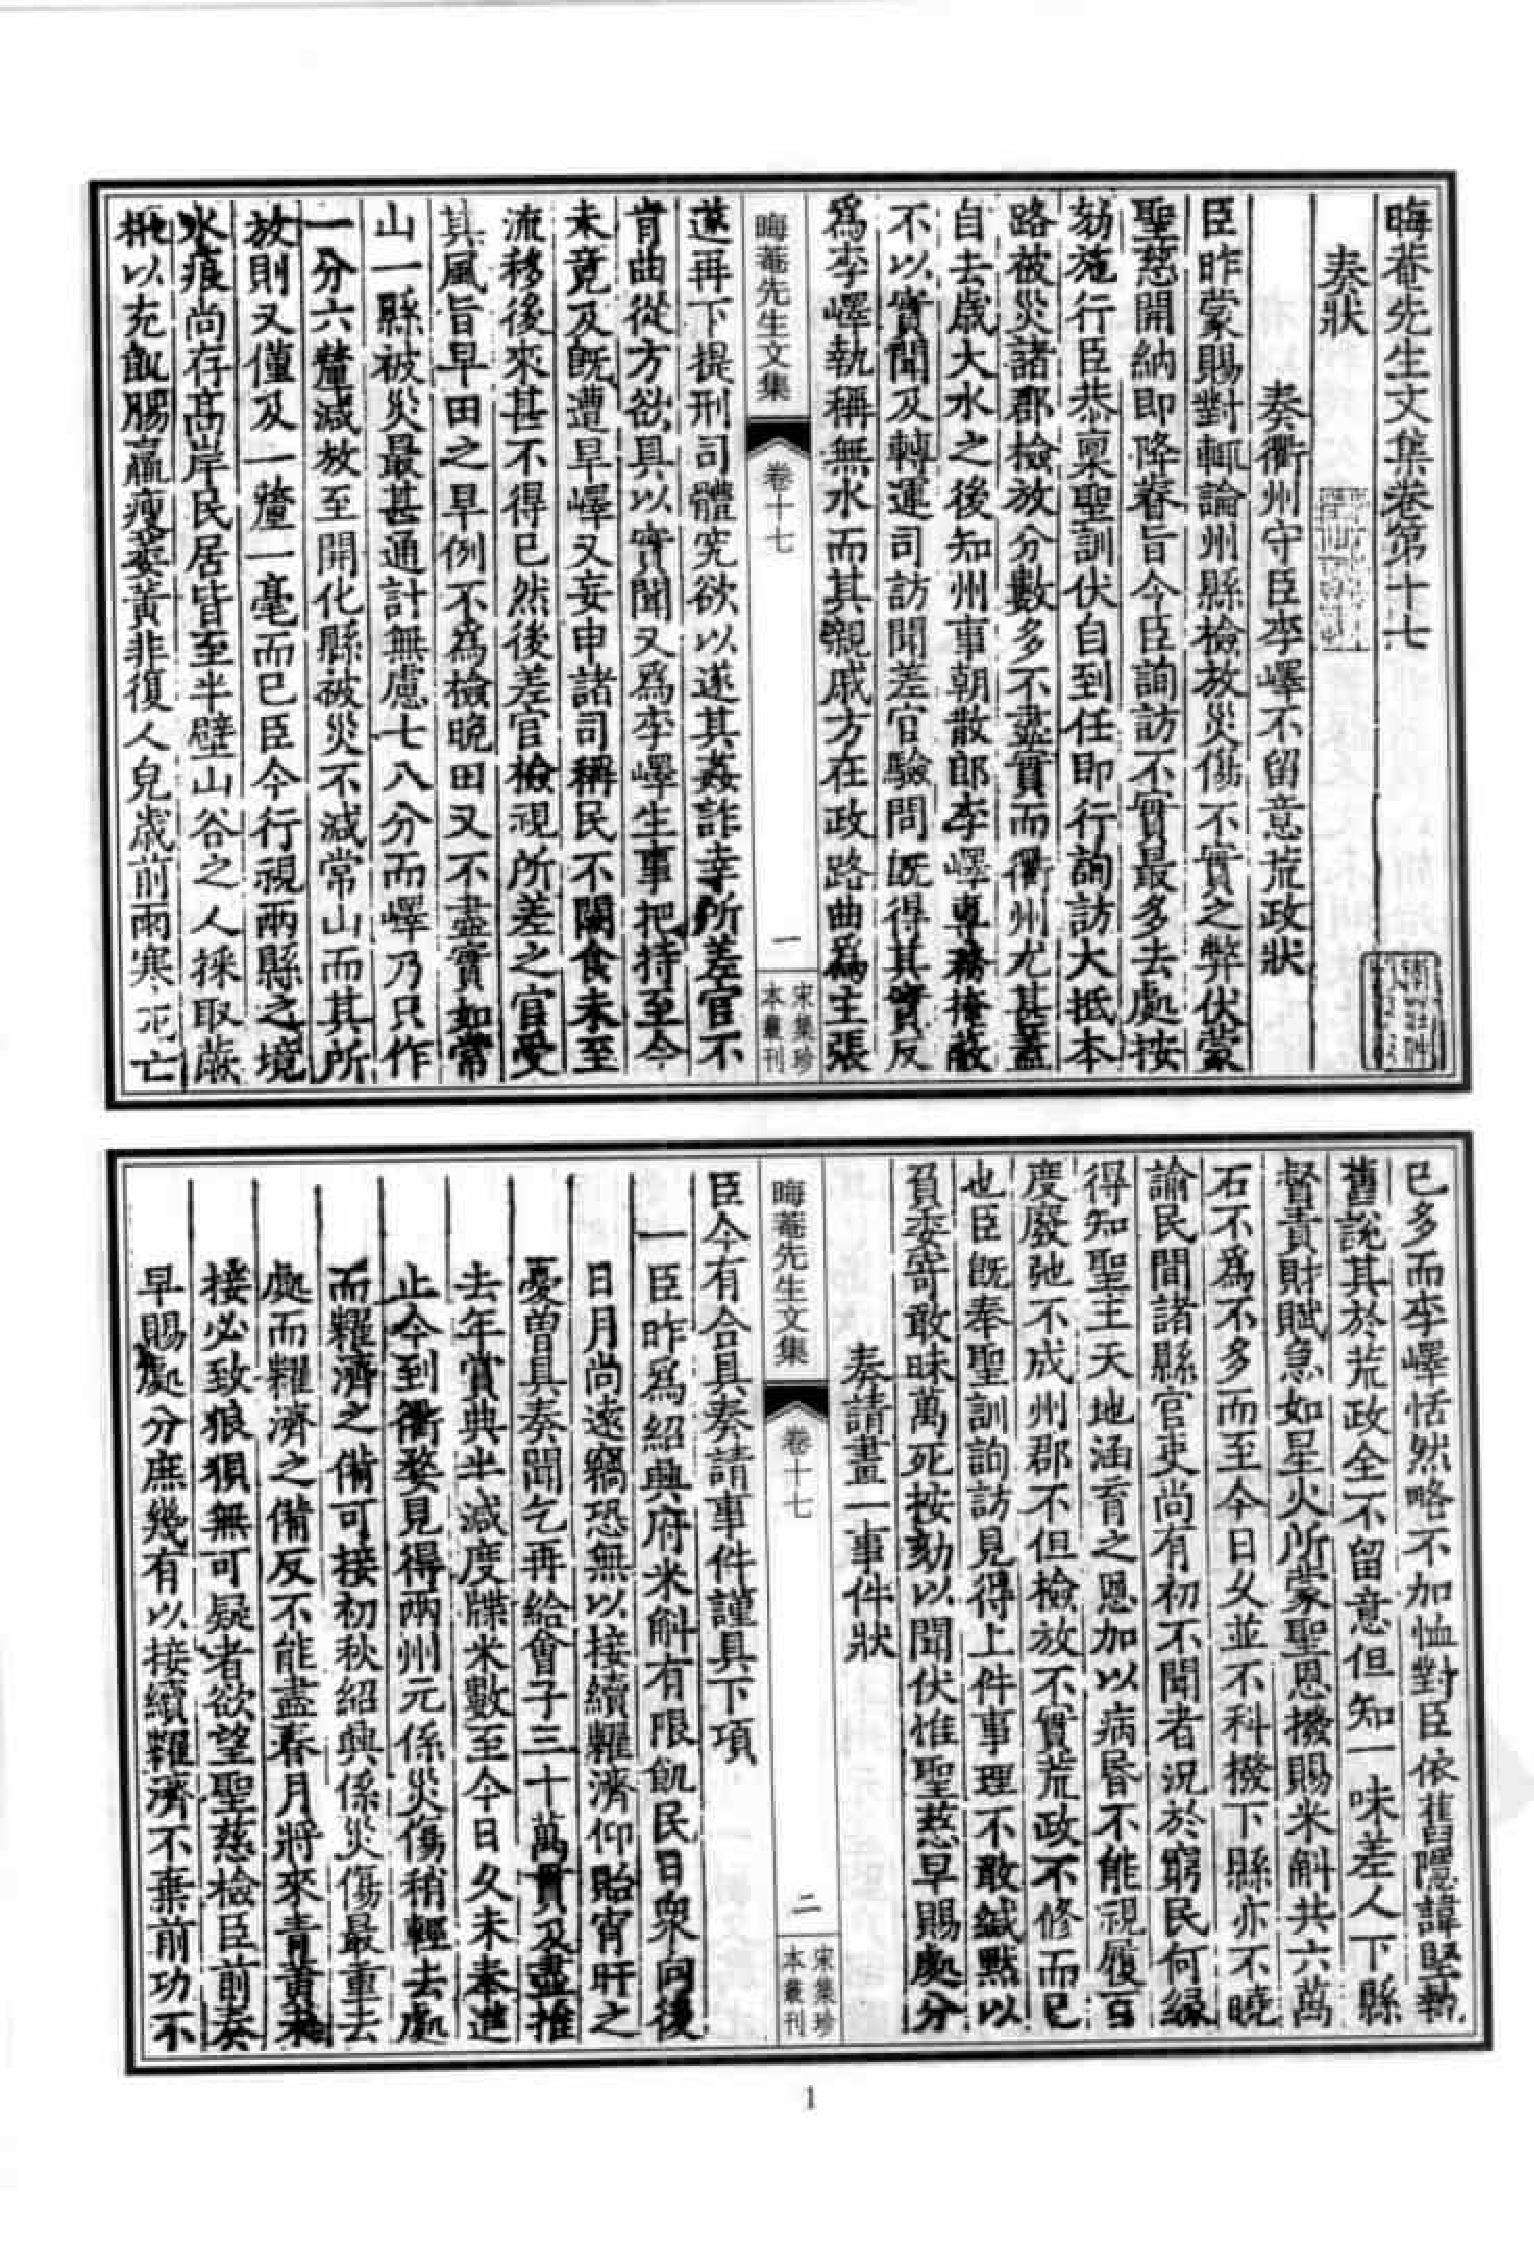 晦菴先生文集卷第十七
奏狀
奏衢州守臣李嶧不留意荒政狀
臣昨蒙賜對輒論州縣檢放災傷不實之弊伏蒙
聖慈開納即降睿旨今臣詢訪不實最多去處按
劾施行臣恭稟聖訓伏自到任即行詢訪大抵本
路被災諸郡檢放分數多不盡實而衢州尤甚蓋
自去歲大水之後知州事朝散郎李嶧專務掩蔽
不以實聞及轉運司訪聞差官驗問既得其實反
爲李嶧執稱無水而其親戚方在政路曲爲主張
晦菴先生文集
卷十七
一
宋集珍
本叢刊
遂再下提刑司體究欲以遂其姦詐幸所差官不
肯曲從方欲具以實聞又爲李嶧生事把持至今
未竟及既遭旱嶧又妄申諸司稱民不闕食未至
流移後來甚不得已然後差官檢視所差之官受
其風旨早田之旱例不爲檢晚田又不盡實如常
山一縣被災最甚通計無慮七八分而嶧乃只作
一分六釐減放至開化縣被災不減常山而其所
放則又僅及一釐一毫而已臣今行視兩縣之境
水痕尚存高岸民居皆至半壁山谷之人採取蕨
根以充飢腸羸瘦萎黃非復人皃歲前雨寒死亡
已多而李嶧恬然略不加恤對臣依舊隱諱堅執
舊說其於荒政全不留意但知一味差人下縣
督責財賦急如星火所蒙聖恩撥賜米斛共六萬
石不爲不多而至今日久並不科撥下縣亦不曉
諭民間諸縣官吏尚有初不聞者況於窮民何緣
得知聖主天地涵育之恩加以病昬不能視履百
度廢弛不成州郡不但檢放不實荒政不修而已
也臣既奉聖訓詢訪見得上件事理不敢緘默以
負委寄敢昧萬死按劾以聞伏惟聖慈早賜處分
奏請畫一事件狀
晦菴先生文集
卷十七
二
宋集珍
本叢刊
臣今有合具奏請事件謹具下項
一臣昨爲紹興府米斛有限飢民日衆向後
日月尚遠竊恐無以接續糶濟仰貽宵旰之
憂曾具奏聞乞再給會子三十萬貫及盡推
去年賞典半減度牒米數至今日久未奉進
止今到衢婺見得兩州元係災傷稍輕去處
而糶濟之備可接初秋紹興係災傷最重去
處而糶濟之備反不能盡春月將來青黃未
接必致狼狽無可疑者欲望聖慈檢臣前奏
早賜處分庶幾有以接續糶濟不棄前功不
1